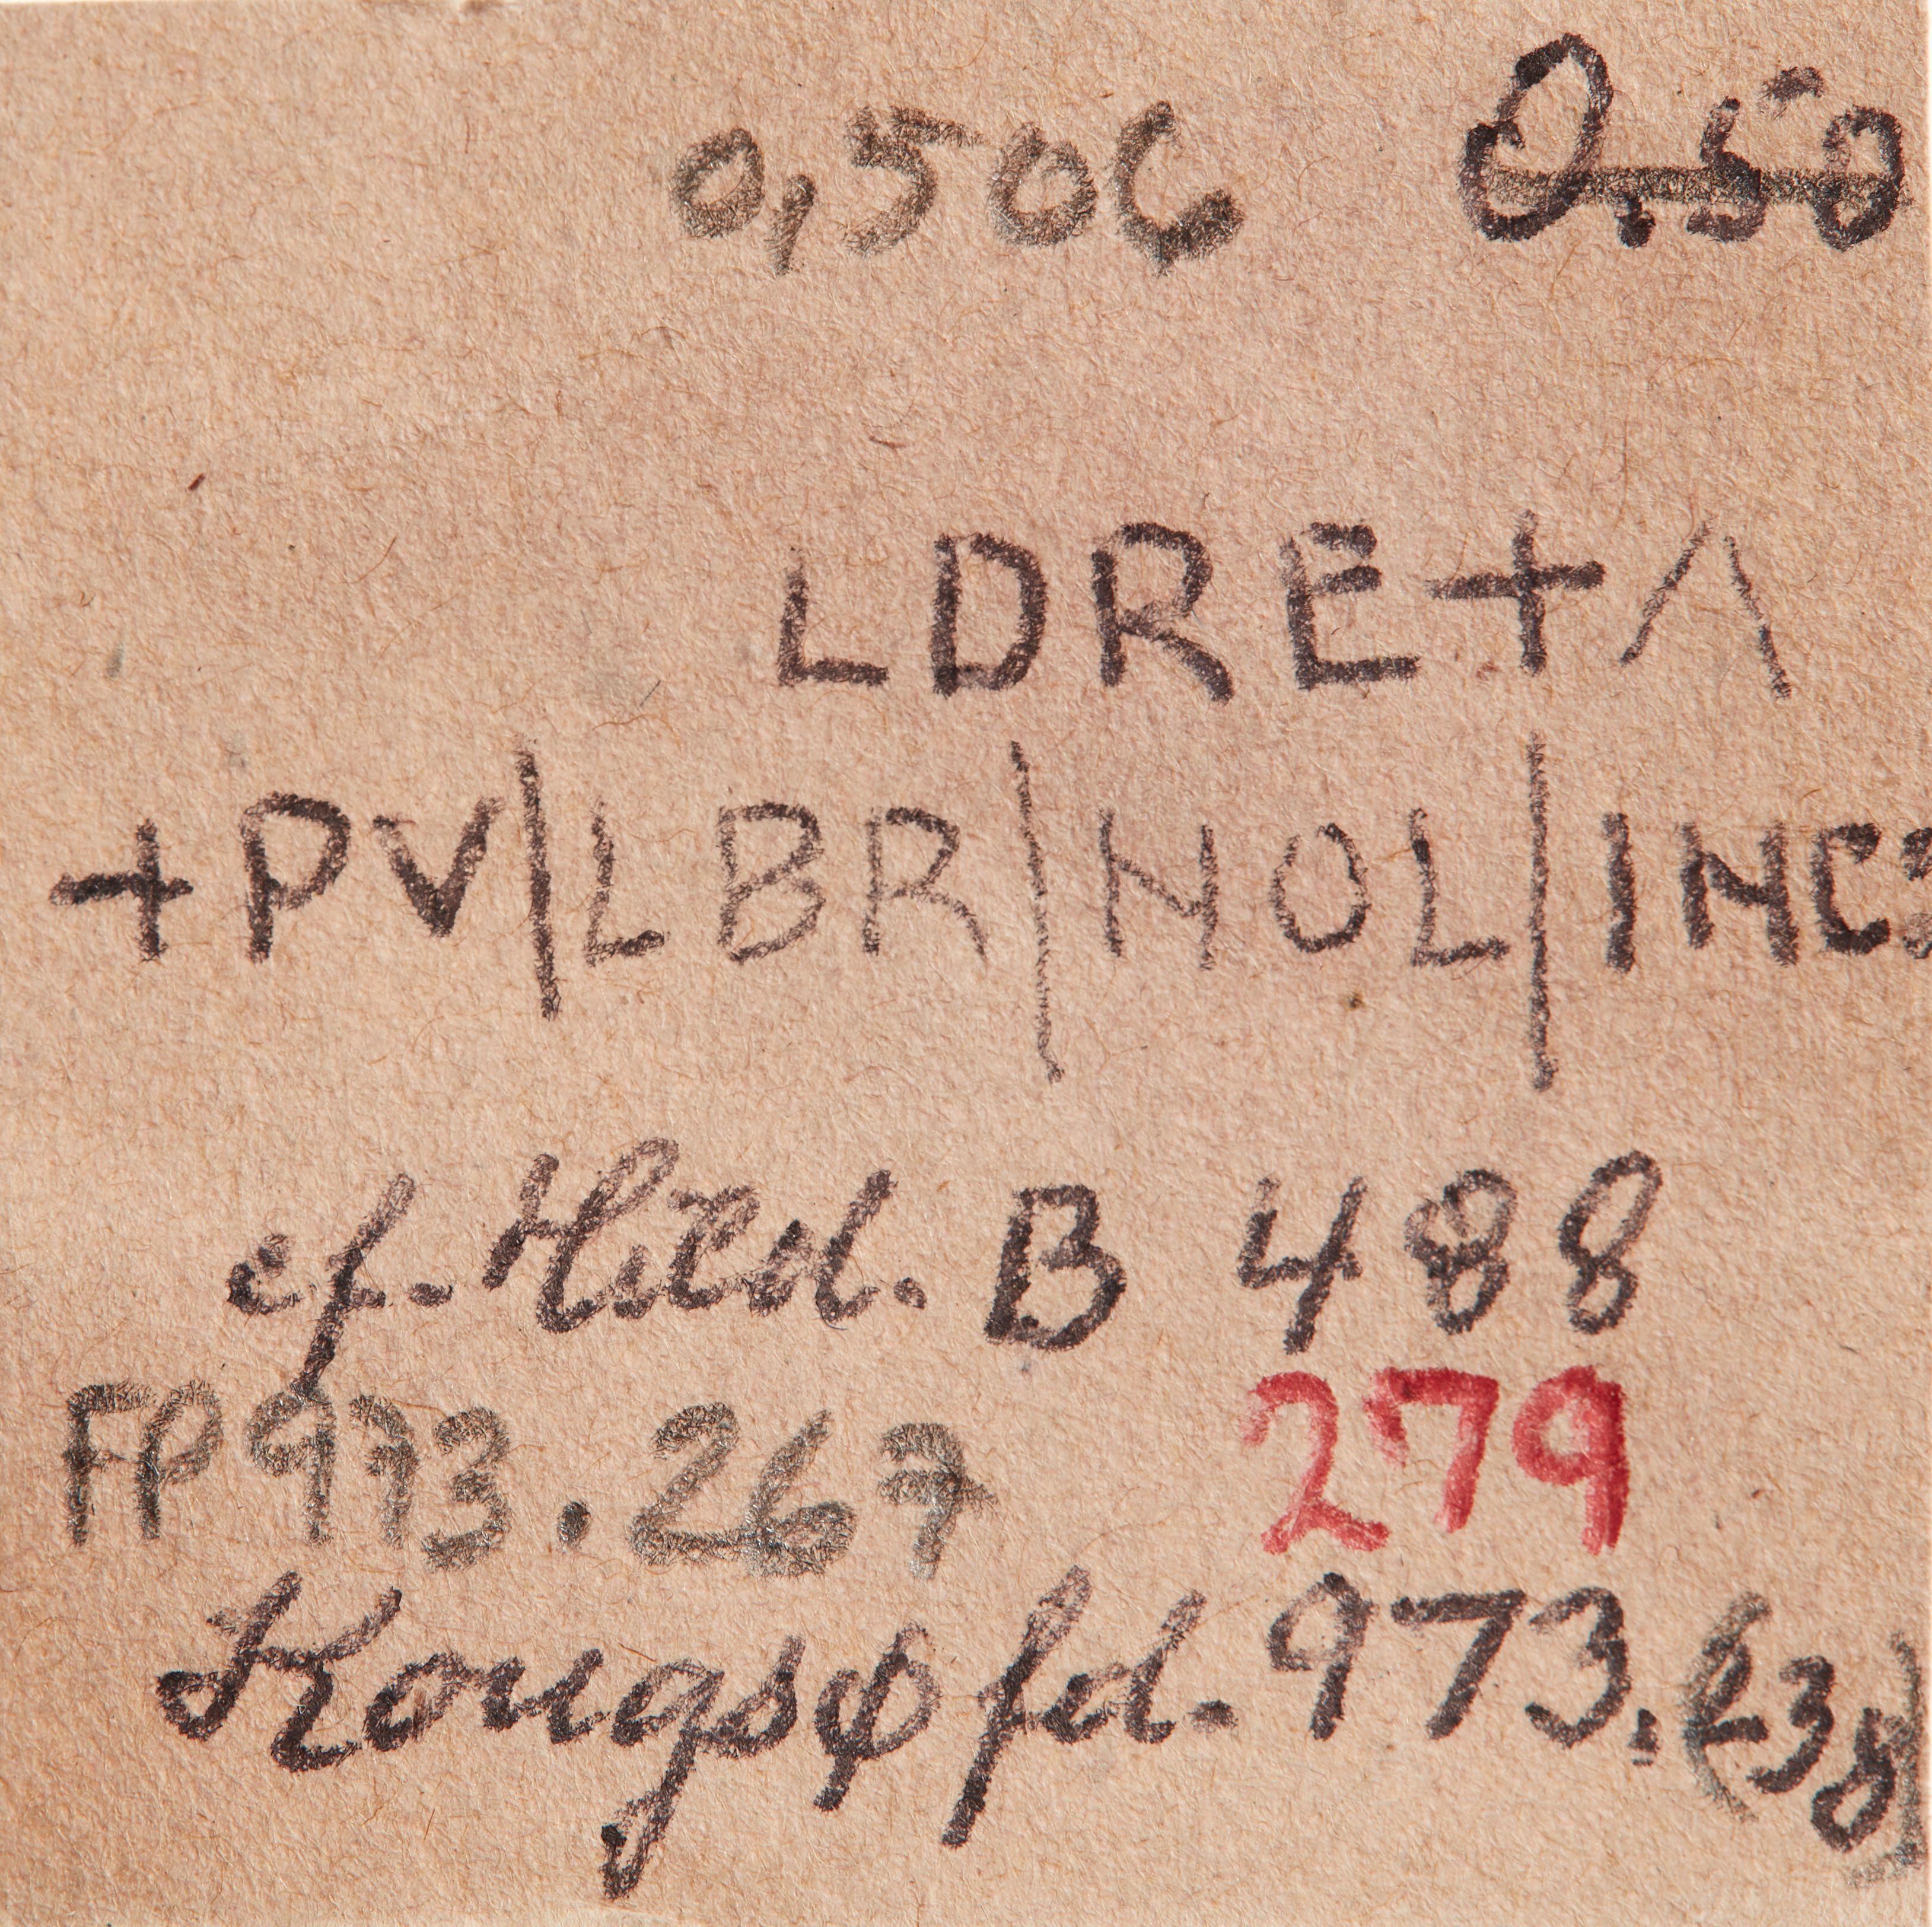 0,506 0.50
LDRE+Λ
+PV|LBR|NOL|INC
cf. Hild. B 488
FP 973.267 279
Kongsø fd. 973.